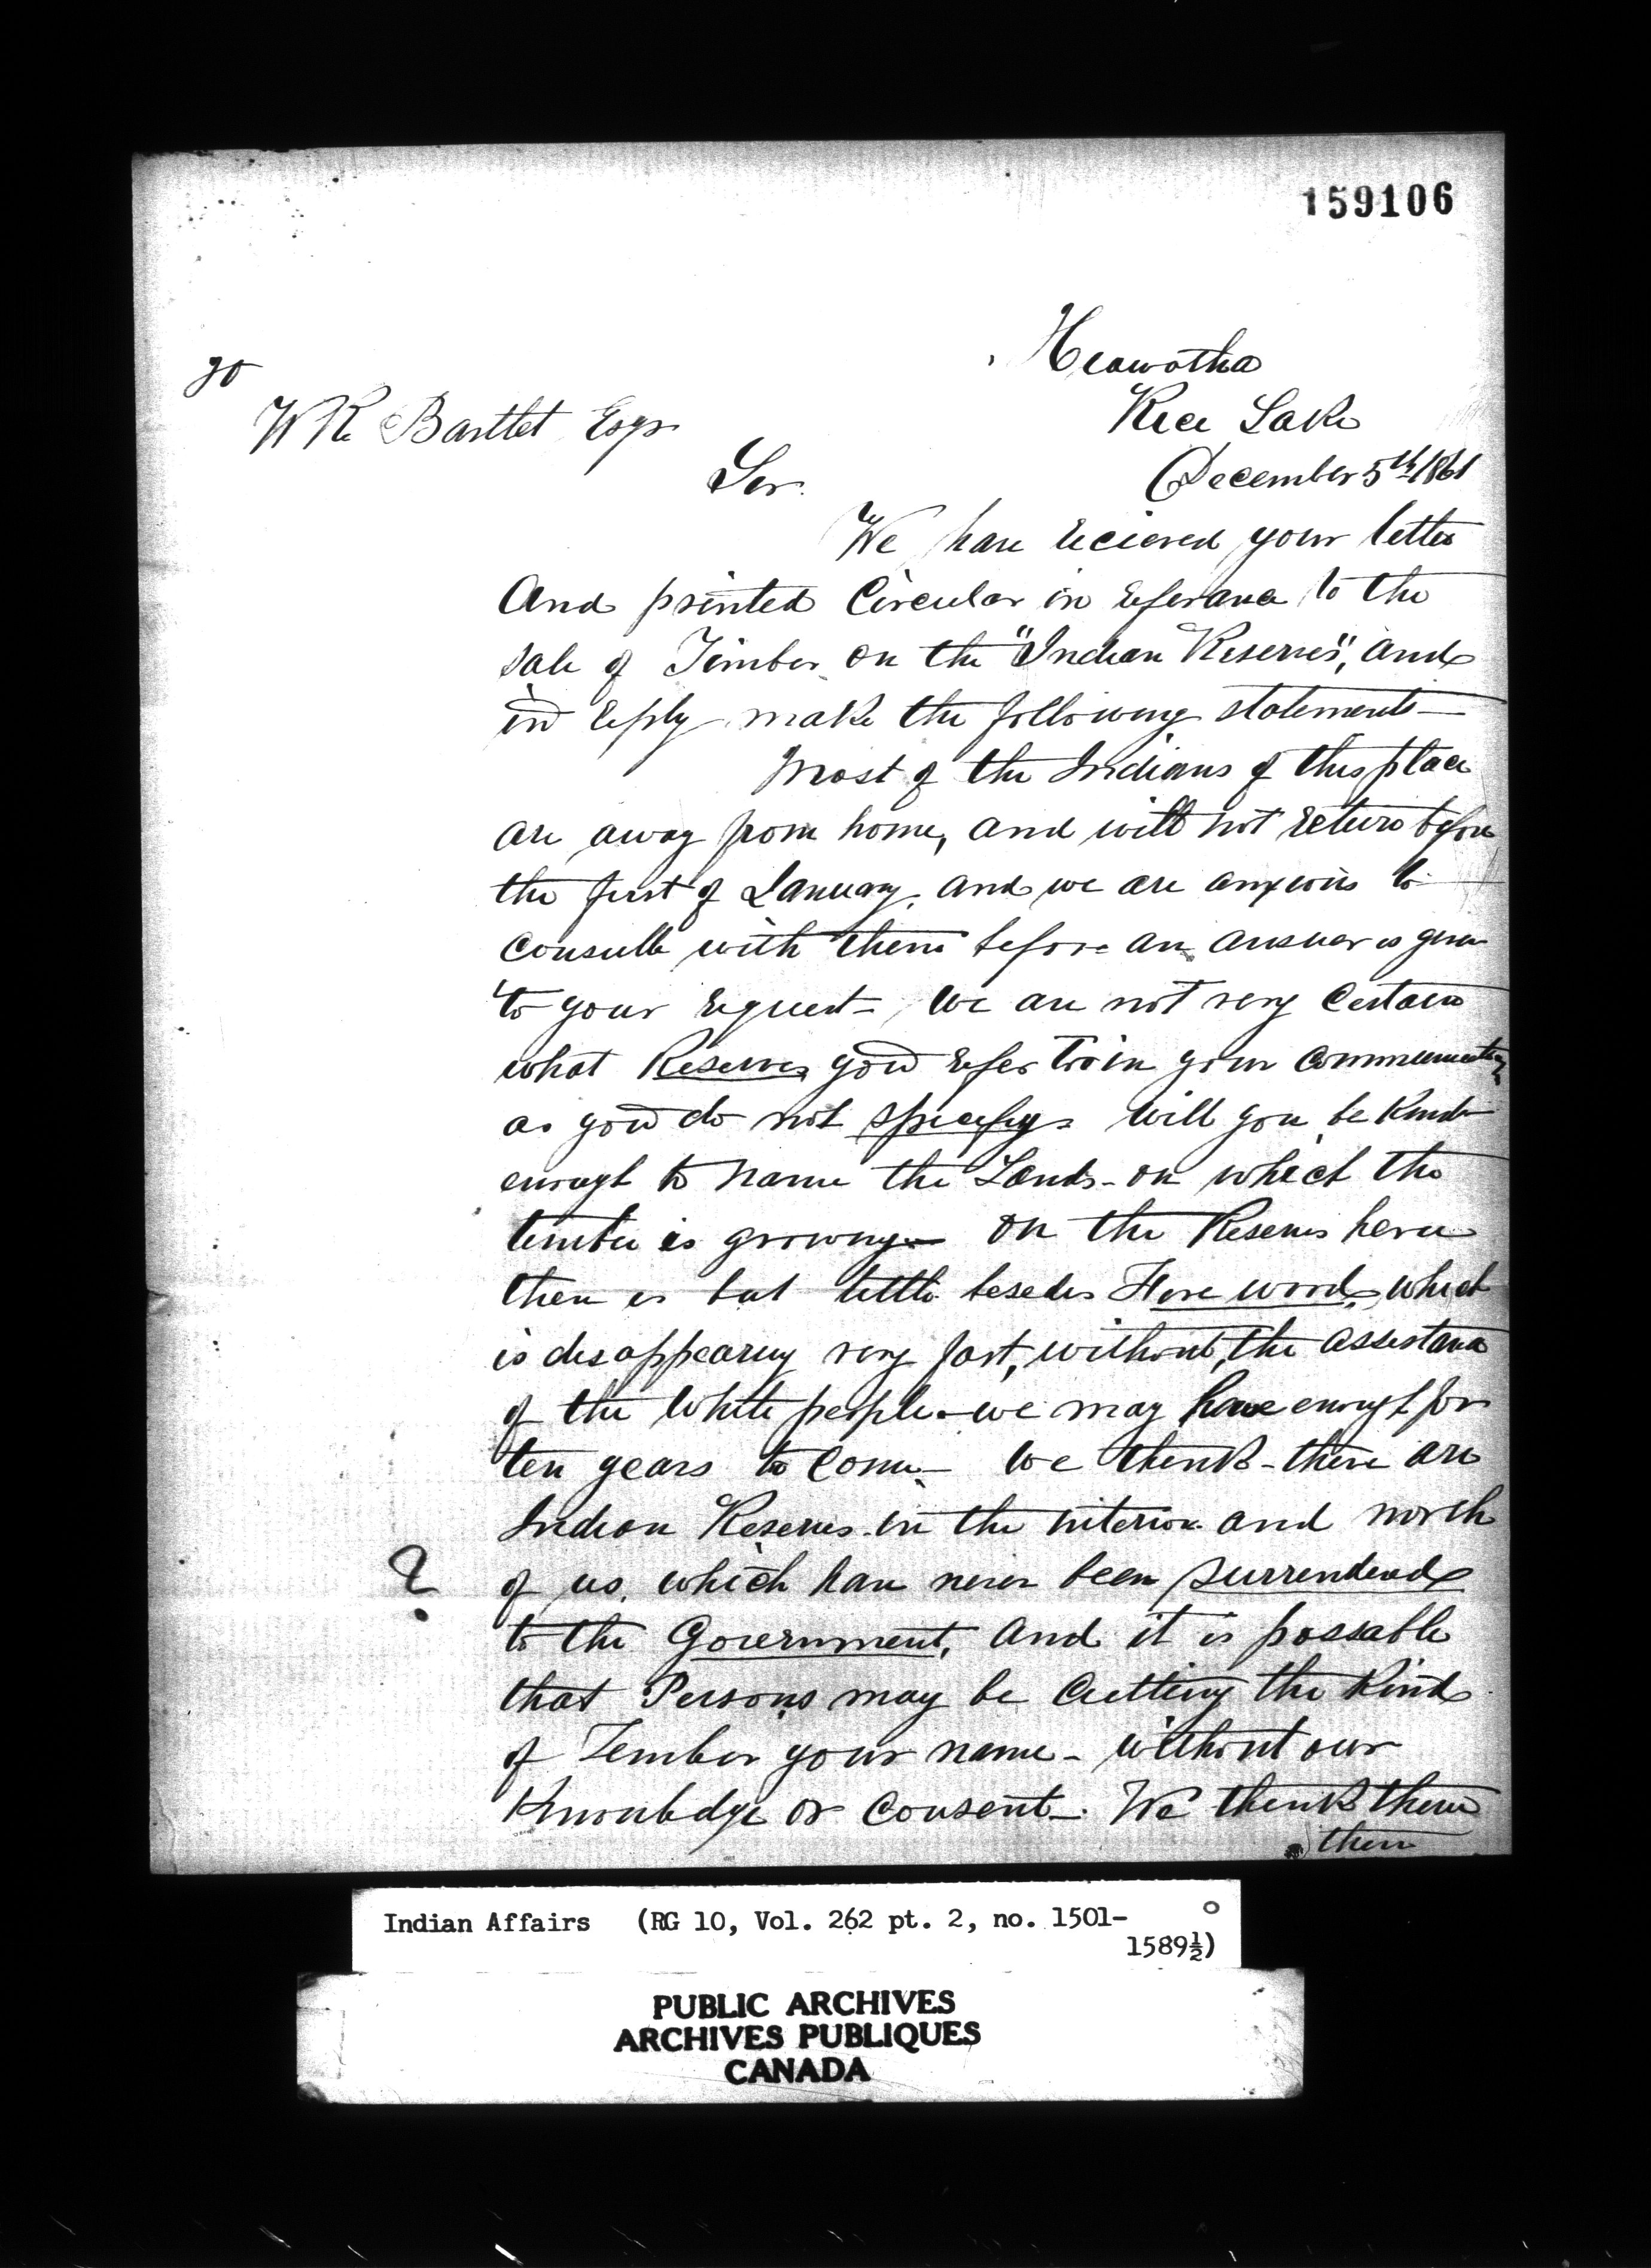 159106
Heawotha
Rice Lake
December 5th 1861
To
W R Bartlet Esqr
Sir.
We have recieved your letter
And printed Circular in referance to the
sale of Timber on the "Indian Reserves", and
in reply make the following statements—
Most of the Indians of this place
are away from home, and will not return before
the first of January. and we are anxious to
consult with them before an answer is given
to your request— We are not very Certain
what Reserves you refer to in your communication,
as you do not specify. Will you be kind
enough to name the Lands - on which the
timber is growing— On the Reserves here
there is but little besides Fire wood, which
is disappearing very fast, without, the assistance
of the White people.— we may have enough for
ten years to Come— We think - there are
Indian Reserves in the interior and north
? of us. which have never been surrendered
to the Government, and it is possable
that Persons may be Cutting the kind
of Timber your name - without our
Knowledge or Consent—. We think there
there
Indian Affairs (RG 10, Vol. 262 pt. 2, no. 1501-
1589½)
PUBLIC ARCHIVES
ARCHIVES PUBLIQUES
CANADA